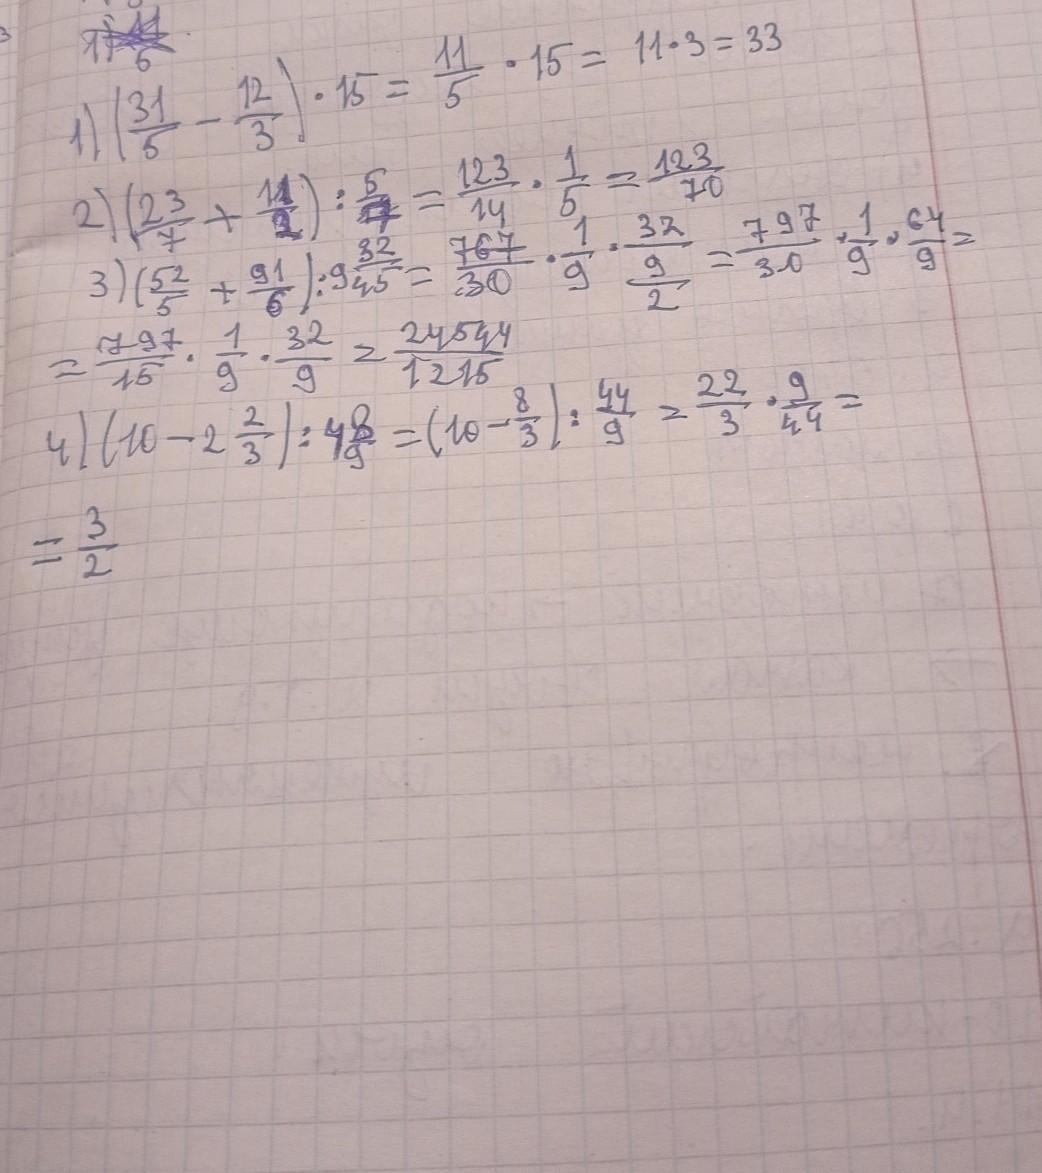 1) (31/5 - 12/3) · 15 = 11/5 · 15 = 11·3 = 33
2) (23/7 + 11/2) : 5 = 123/14 · 1/5 = 123/70
3) (52/5 + 91/6) : 9 32/45 = 767/30 · 1/9 · 32/(9/2) = 797/30 · 1/9 · 64/9 =
= 797/15 · 1/9 · 32/9 = 24544/1215
4) (10 - 2 2/3) : 4 8/9 = (10 - 8/3) : 44/9 = 22/3 · 9/44 =
= 3/2